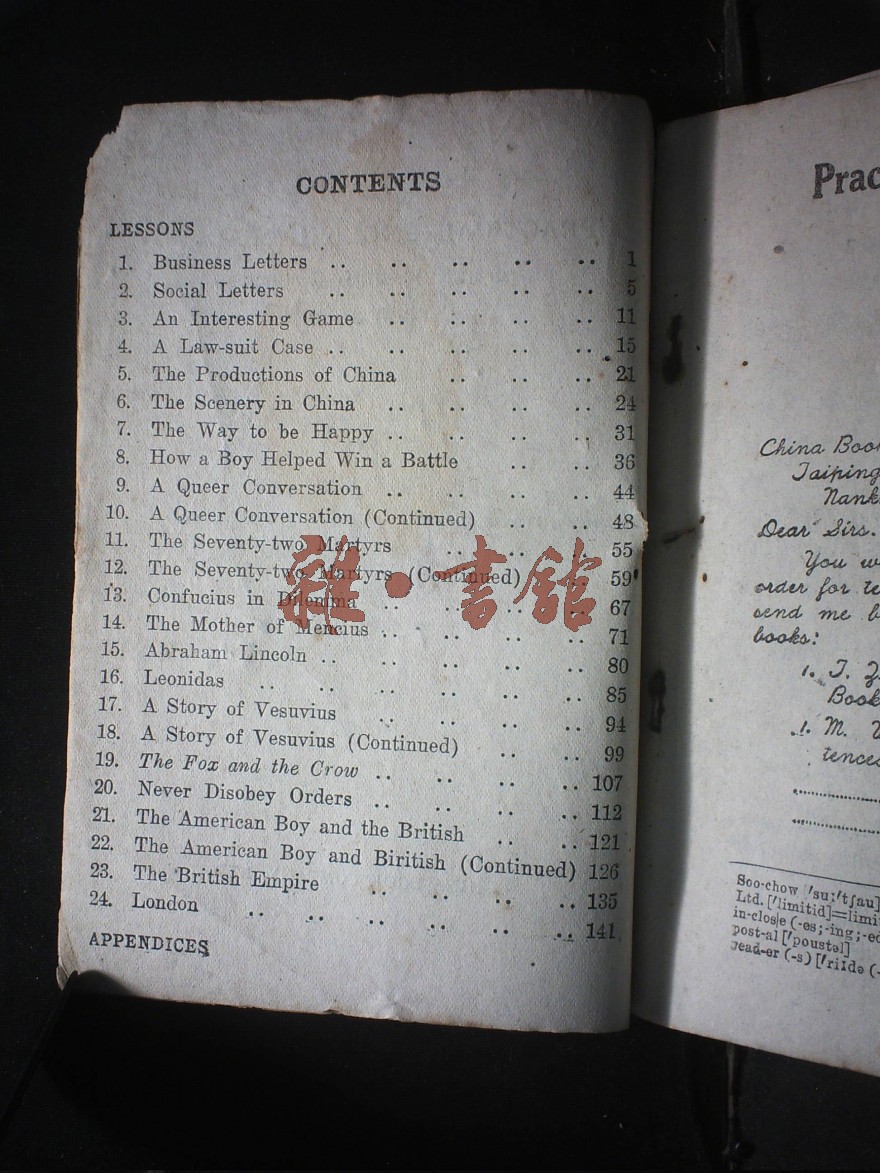 CONTENTS
LESSONS
1. Business Letters .. .. .. .. .. 1
2. Social Letters .. .. .. .. .. 5
3. An Interesting Game .. .. .. .. 11
4. A Law-suit Case .. .. .. .. .. 15
5. The Productions of China .. .. .. 21
6. The Scenery in China .. .. .. .. 24
7. The Way to be Happy .. .. .. .. 31
8. How a Boy Helped Win a Battle .. .. 36
9. A Queer Conversation .. .. .. .. 44
10. A Queer Conversation (Continued) .. .. 48
11. The Seventy-two Martyrs .. .. 55
12. The Seventy-two Martyrs (Continued) .. 59
13. Confucius in Dilemma .. .. .. .. 67
14. The Mother of Mencius .. .. .. .. 71
15. Abraham Lincoln .. .. .. .. .. 80
16. Leonidas .. .. .. .. .. .. 85
17. A Story of Vesuvius .. .. .. .. 94
18. A Story of Vesuvius (Continued) .. .. 99
19. The Fox and the Crow .. .. .. .. 107
20. Never Disobey Orders .. .. .. .. 112
21. The American Boy and the British .. .. 121
22. The American Boy and Biritish (Continued) 126
23. The British Empire .. .. .. .. 135
24. London .. .. .. .. .. .. 141
APPENDICES
雜·書館
Prac
China Boo
Taiping
Nank
Dear Sirs.
You w
order for te
send me b
books:
1. T. Z
Book
1. M. V
tences
Soo-chow ['su:'tʃau]
Ltd. ['limitid]=limi
in-clos|e (-es;-ing;-ed
post-al ['poustəl]
read-er (-s) ['ri:də (-